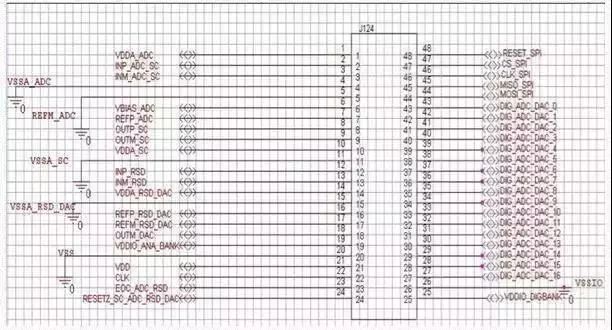 J124
1 1 48 48 RESET_SPI
VDDA_ADC 2 2 47 47 CS_SPI
INP_ADC_SC 3 3 46 46 CLK_SPI
INM_ADC_SC 4 4 45 45 MISO_SPI
VSSA_ADC 5 5 44 44 MOSI_SPI
0 REFM_ADC 6 6 43 43 DIG_ADC_DAC_0
VBIAS_ADC 7 7 42 42 DIG_ADC_DAC_1
REFP_ADC 8 8 41 41 DIG_ADC_DAC_2
0 OUTP_SC 9 9 40 40 DIG_ADC_DAC_3
OUTM_SC 10 10 39 39 DIG_ADC_DAC_4
VDDA_SC 11 11 38 38 DIG_ADC_DAC_5
VSSA_SC 12 12 37 37 DIG_ADC_DAC_6
INP_RSD 13 13 36 36 DIG_ADC_DAC_7
0 INM_RSD 14 14 35 35 DIG_ADC_DAC_8
VDDA_RSD_DAC 15 15 34 34 DIG_ADC_DAC_9
VSSA_RSD_DAC 16 16 33 33 DIG_ADC_DAC_10
0 REFP_RSD_DAC 17 17 32 32 DIG_ADC_DAC_11
REFM_RSD_DAC 18 18 31 31 DIG_ADC_DAC_12
OUTM_DAC 19 19 30 30 DIG_ADC_DAC_13
VDDIO_ANA_BANK 20 20 29 29 DIG_ADC_DAC_14
VSS 21 21 28 28 DIG_ADC_DAC_15
VDD 22 22 27 27 DIG_ADC_DAC_16
0 CLK 23 23 26 26 VSSIO
EOC_ADC_RSD 24 24 25 25 0
RESETZ_SC_ADC_RSD_DAC VDDIO_DIGBANK